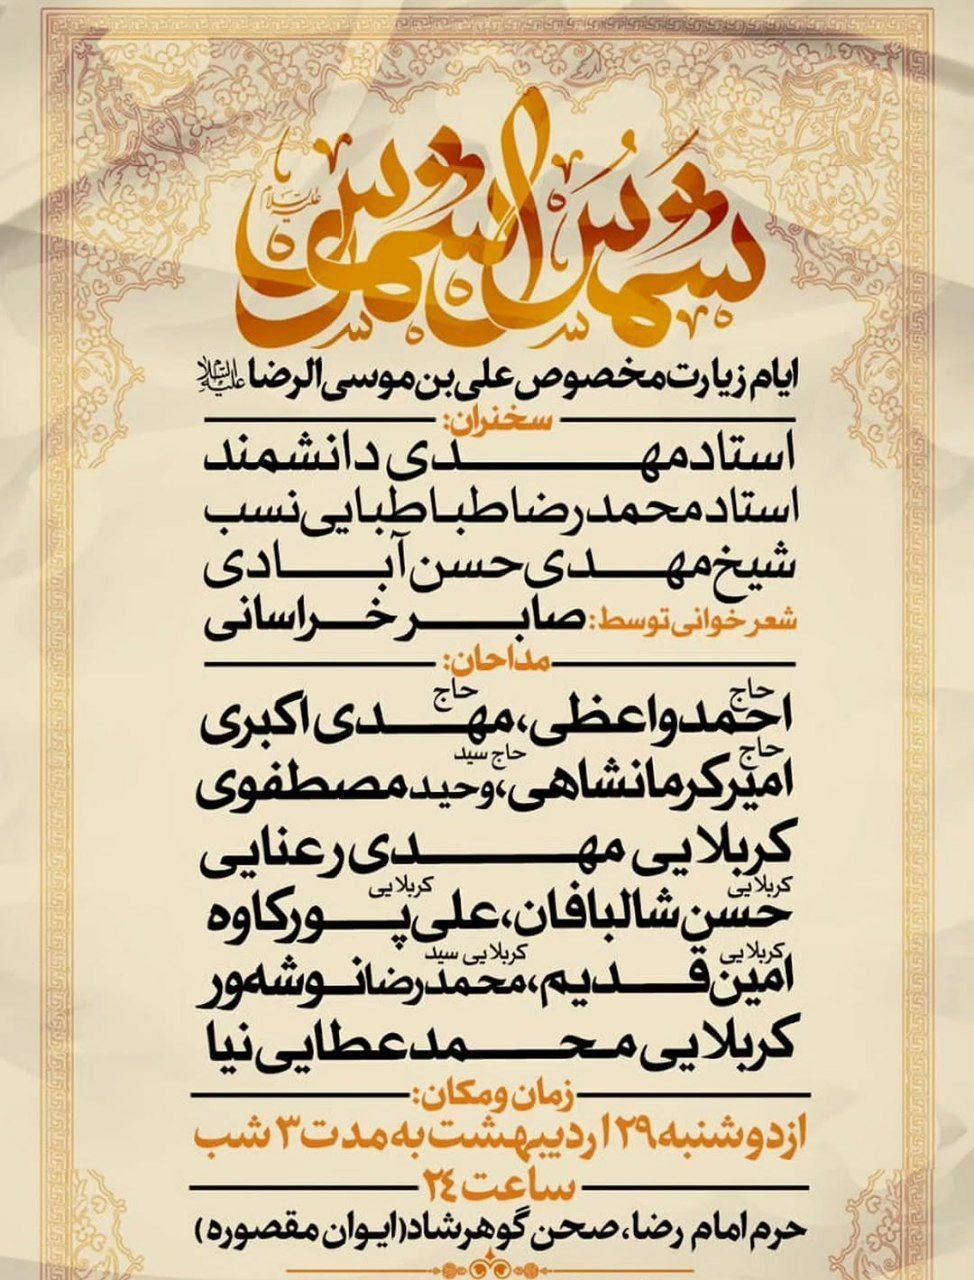 شمس الشموس علیه السلام
ایام زیارت مخصوص علی بن موسی الرضا علیه السلام
سخنران:
استاد مهدی دانشمند
استاد محمدرضا طباطبایی نسب
شیخ مهدی حسن آبادی
شعر خوانی توسط: صابر خراسانی
مداحان:
حاج احمد واعظی، حاج مهدی اکبری
حاج امیر کرمانشاهی، حاج سید وحید مصطفوی
کربلایی مهدی رعنایی
کربلایی حسن شالبافان، کربلایی علی پورکاوه
کربلایی امین قدیم، کربلایی سید محمدرضا نوشه‌ور
کربلایی محمد عطایی نیا
زمان و مکان:
از دوشنبه ۲۹ اردیبهشت به مدت ۳ شب
ساعت ۲۴
حرم امام رضا، صحن گوهرشاد (ایوان مقصوره)